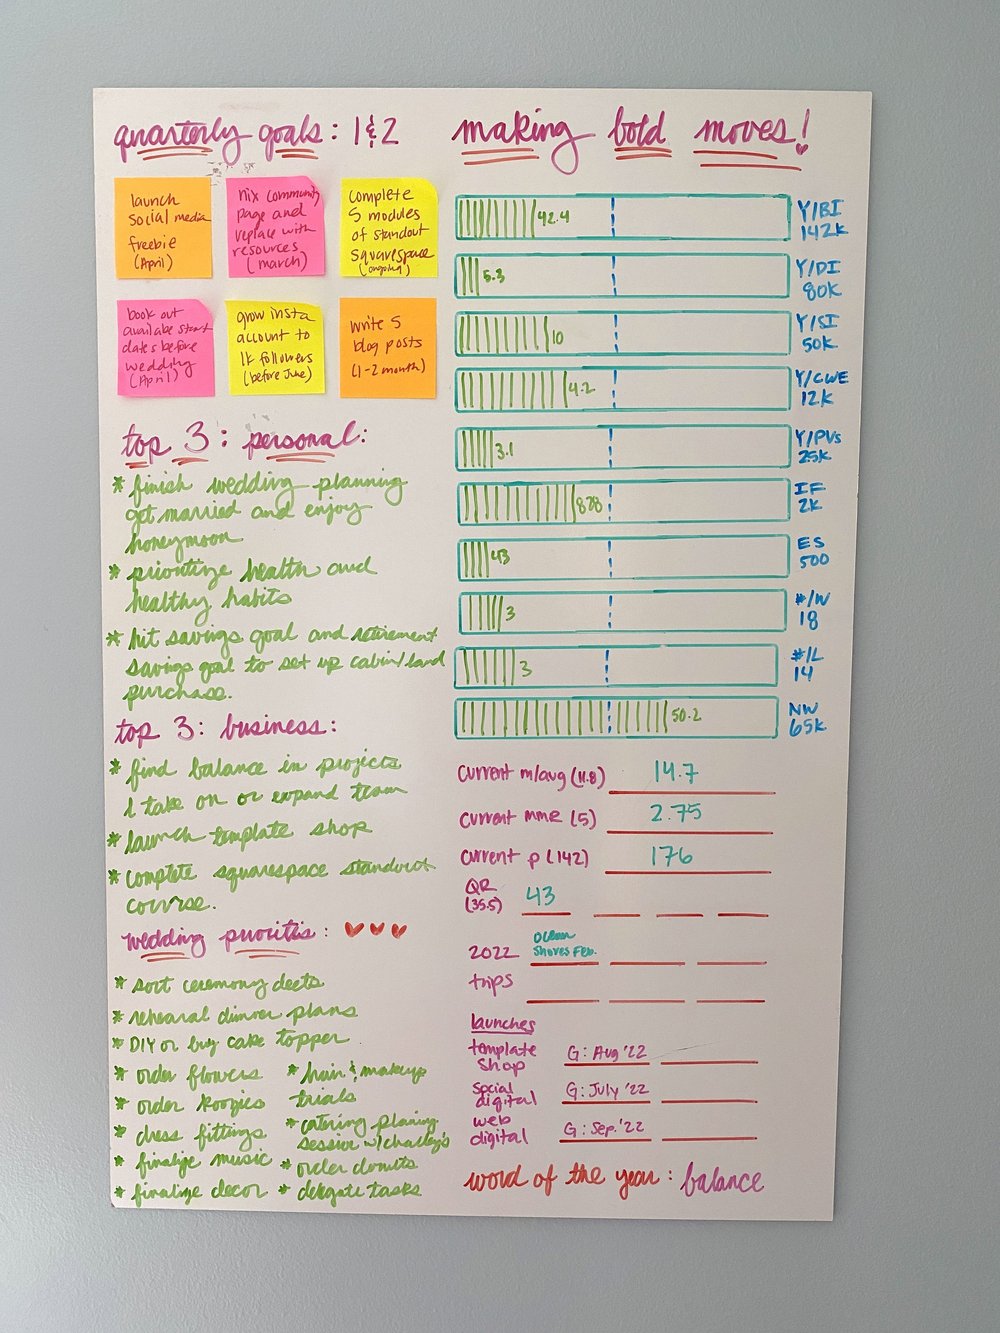 quarterly goals: 1 & 2
launch
social media
freebie
(April)
nix community
page and
replace with
resources
(march)
complete
5 modules
of standout
squarespace
(ongoing)
book out
availabe start
dates before
wedding
(April)
grow insta
account to
1k followers
(before June)
write 5
blog posts
(1-2 month)
top 3: personal:
* finish wedding planning
get married and enjoy
honeymoon
* prioritize health and
healthy habits
* hit savings goal and retirement
savings goal to set up cabin/land
purchase.
top 3: business:
* find balance in projects
I take on or expand team
* launch template shop
* complete squarespace standout
course.
wedding priorities:
* sort ceremony deets
* rehearsal dinner plans
* DIY or buy cake topper
* order flowers
* order koozies
* dress fittings
* finalize music
* finalize decor
* hair & makeup
trials
* catering planing
session w/charley's
* order donuts
* delegate tasks
making bold moves!
42.4
Y/BI
142k
5.3
Y/DI
80k
10
Y/SI
50k
4.2
Y/CWE
12k
3.1
Y/PVs
25k
828
IF
2k
43
ES
500
3
#/W
18
3
#/L
14
50.2
NW
65k
current m/avg (11.8) 14.7
current mme (5) 2.75
current p (142) 176
QR
(35.5) 43
2022
trips
Ocean
Shores Feb.
launches
template
shop
G: Aug '22
social
digital
G: July '22
web
digital
G: Sep. '22
word of the year: balance